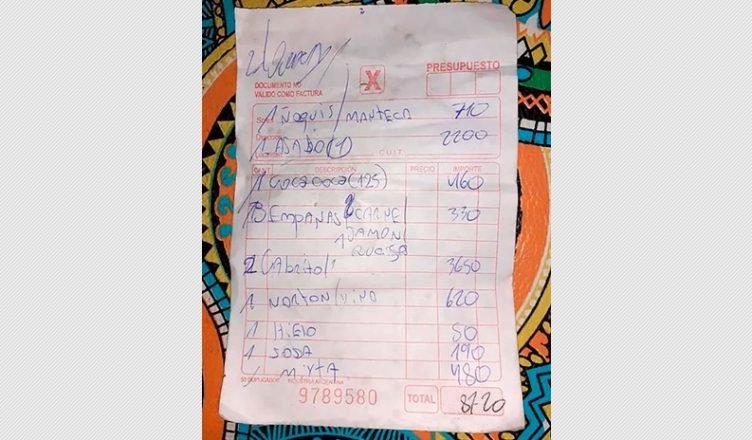 PRESUPUESTO
DOCUMENTO NO
VALIDO COMO FACTURA
X
1 ÑOQUIS / MANTECA 710
1 ASADO (1) 2200
C.U.I.T.
CANT. DESCRIPCIÓN PRECIO IMPORTE
1 COCA COCA (125) 460
3 EMPANAS 2 CARNE 330
1 JAMON
QUESO
2 CABRITO 3650
1 NORTON / VINO 620
1 HIELO 50
1 SODA 190
1 MIXTA 480
50 DUPLICADOR INDUSTRIA ARGENTINA
9789580
TOTAL 8720